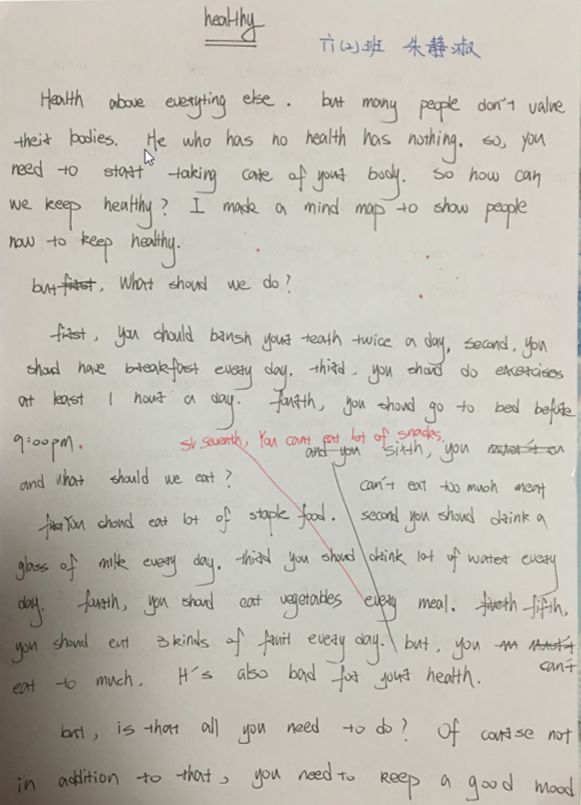 healthy
六(2)班 朱静淑
Health above everyting else. but many people don't value
their bodies. He who has no health has nothing. so, you
need to start taking care of your body. so how can
we keep healthy? I made a mind map to show people
how to keep healthy.
but first, What shoud we do?
first, you should brush your teath twice a day, second, you
shoud have breakfast every day. third, you shoud do exercises
at least 1 hour a day. fourth, you shoud go to bed before
9:00pm.
seventh, You can't eat lot of snacks.
and you sixth, you
and what should we eat? can't eat too much meat
You shoud eat lot of staple food. second you shoud drink a
glass of milk every day. third you shoud drink lot of water every
day. fourth, you shoud eat vegetables every meal. fifth,
you shoud eat 3 kinds of fruit every day. but, you mustn't
can't
eat to much. It's also bad for your health.
but, is that all you need to do? Of course not
in addition to that, you need to keep a good mood